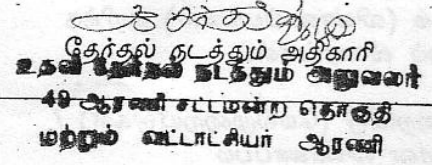 தேர்தல் நடத்தும் அதிகாரி
உதவி தேர்தல் நடத்தும் அலுவலர்
48 ஆரணி சட்டமன்ற தொகுதி
மற்றும் வட்டாட்சியர் ஆரணி